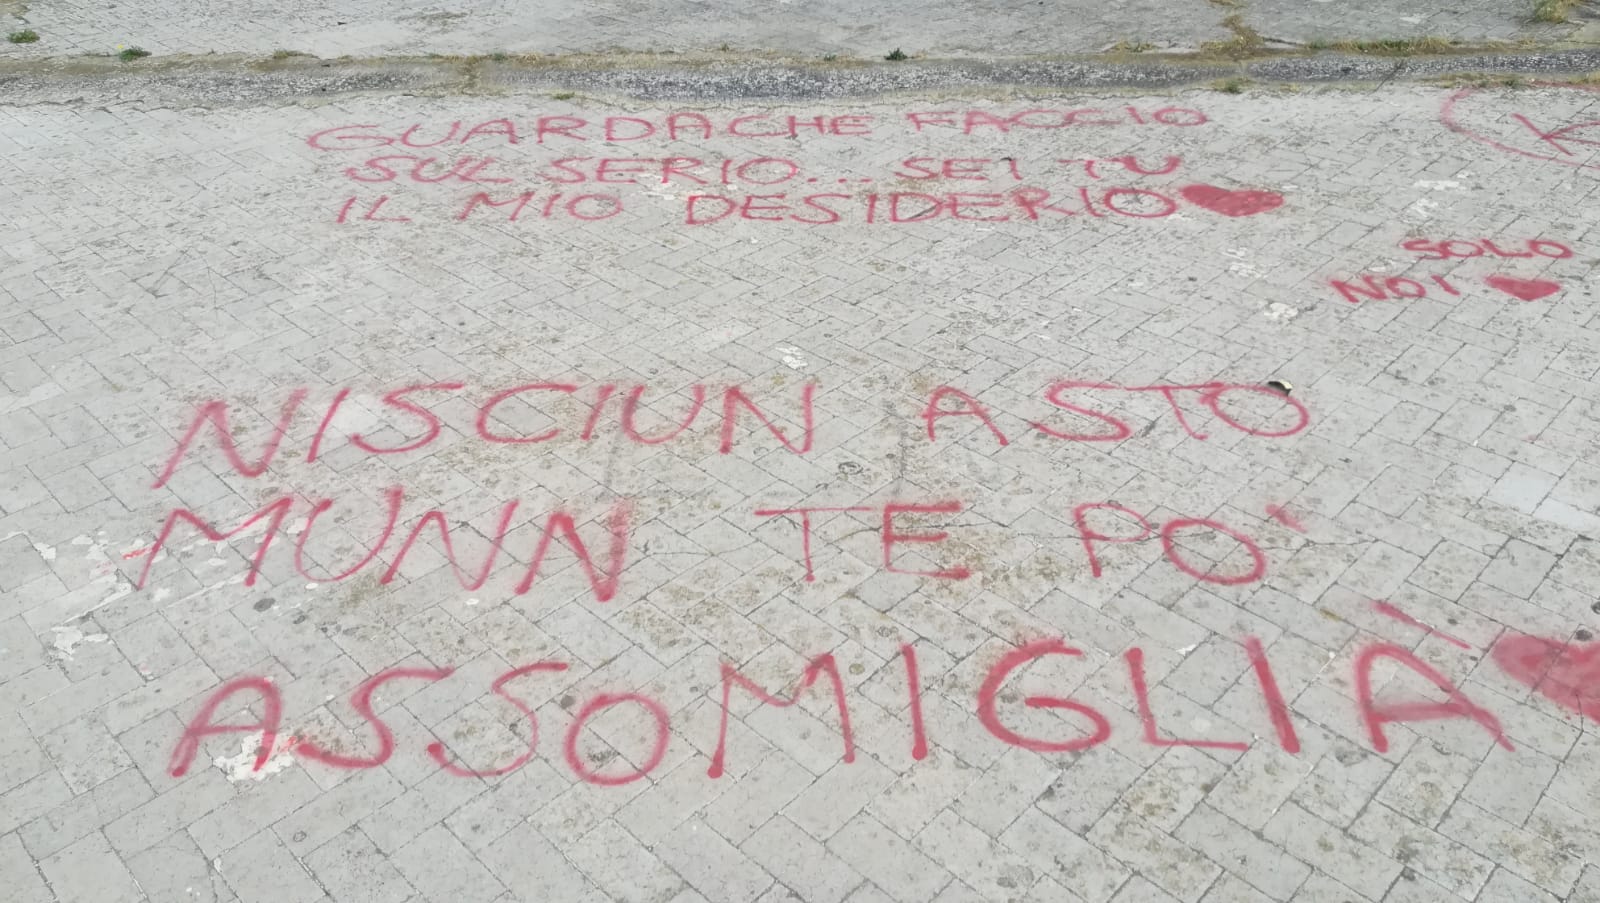 GUARDA CHE FACCIO
SUL SERIO... SEI TU
IL MIO DESIDERIO
SOLO
NOI
NISCIUN A STO
MUNN TE PO'
ASSOMIGLIÀ